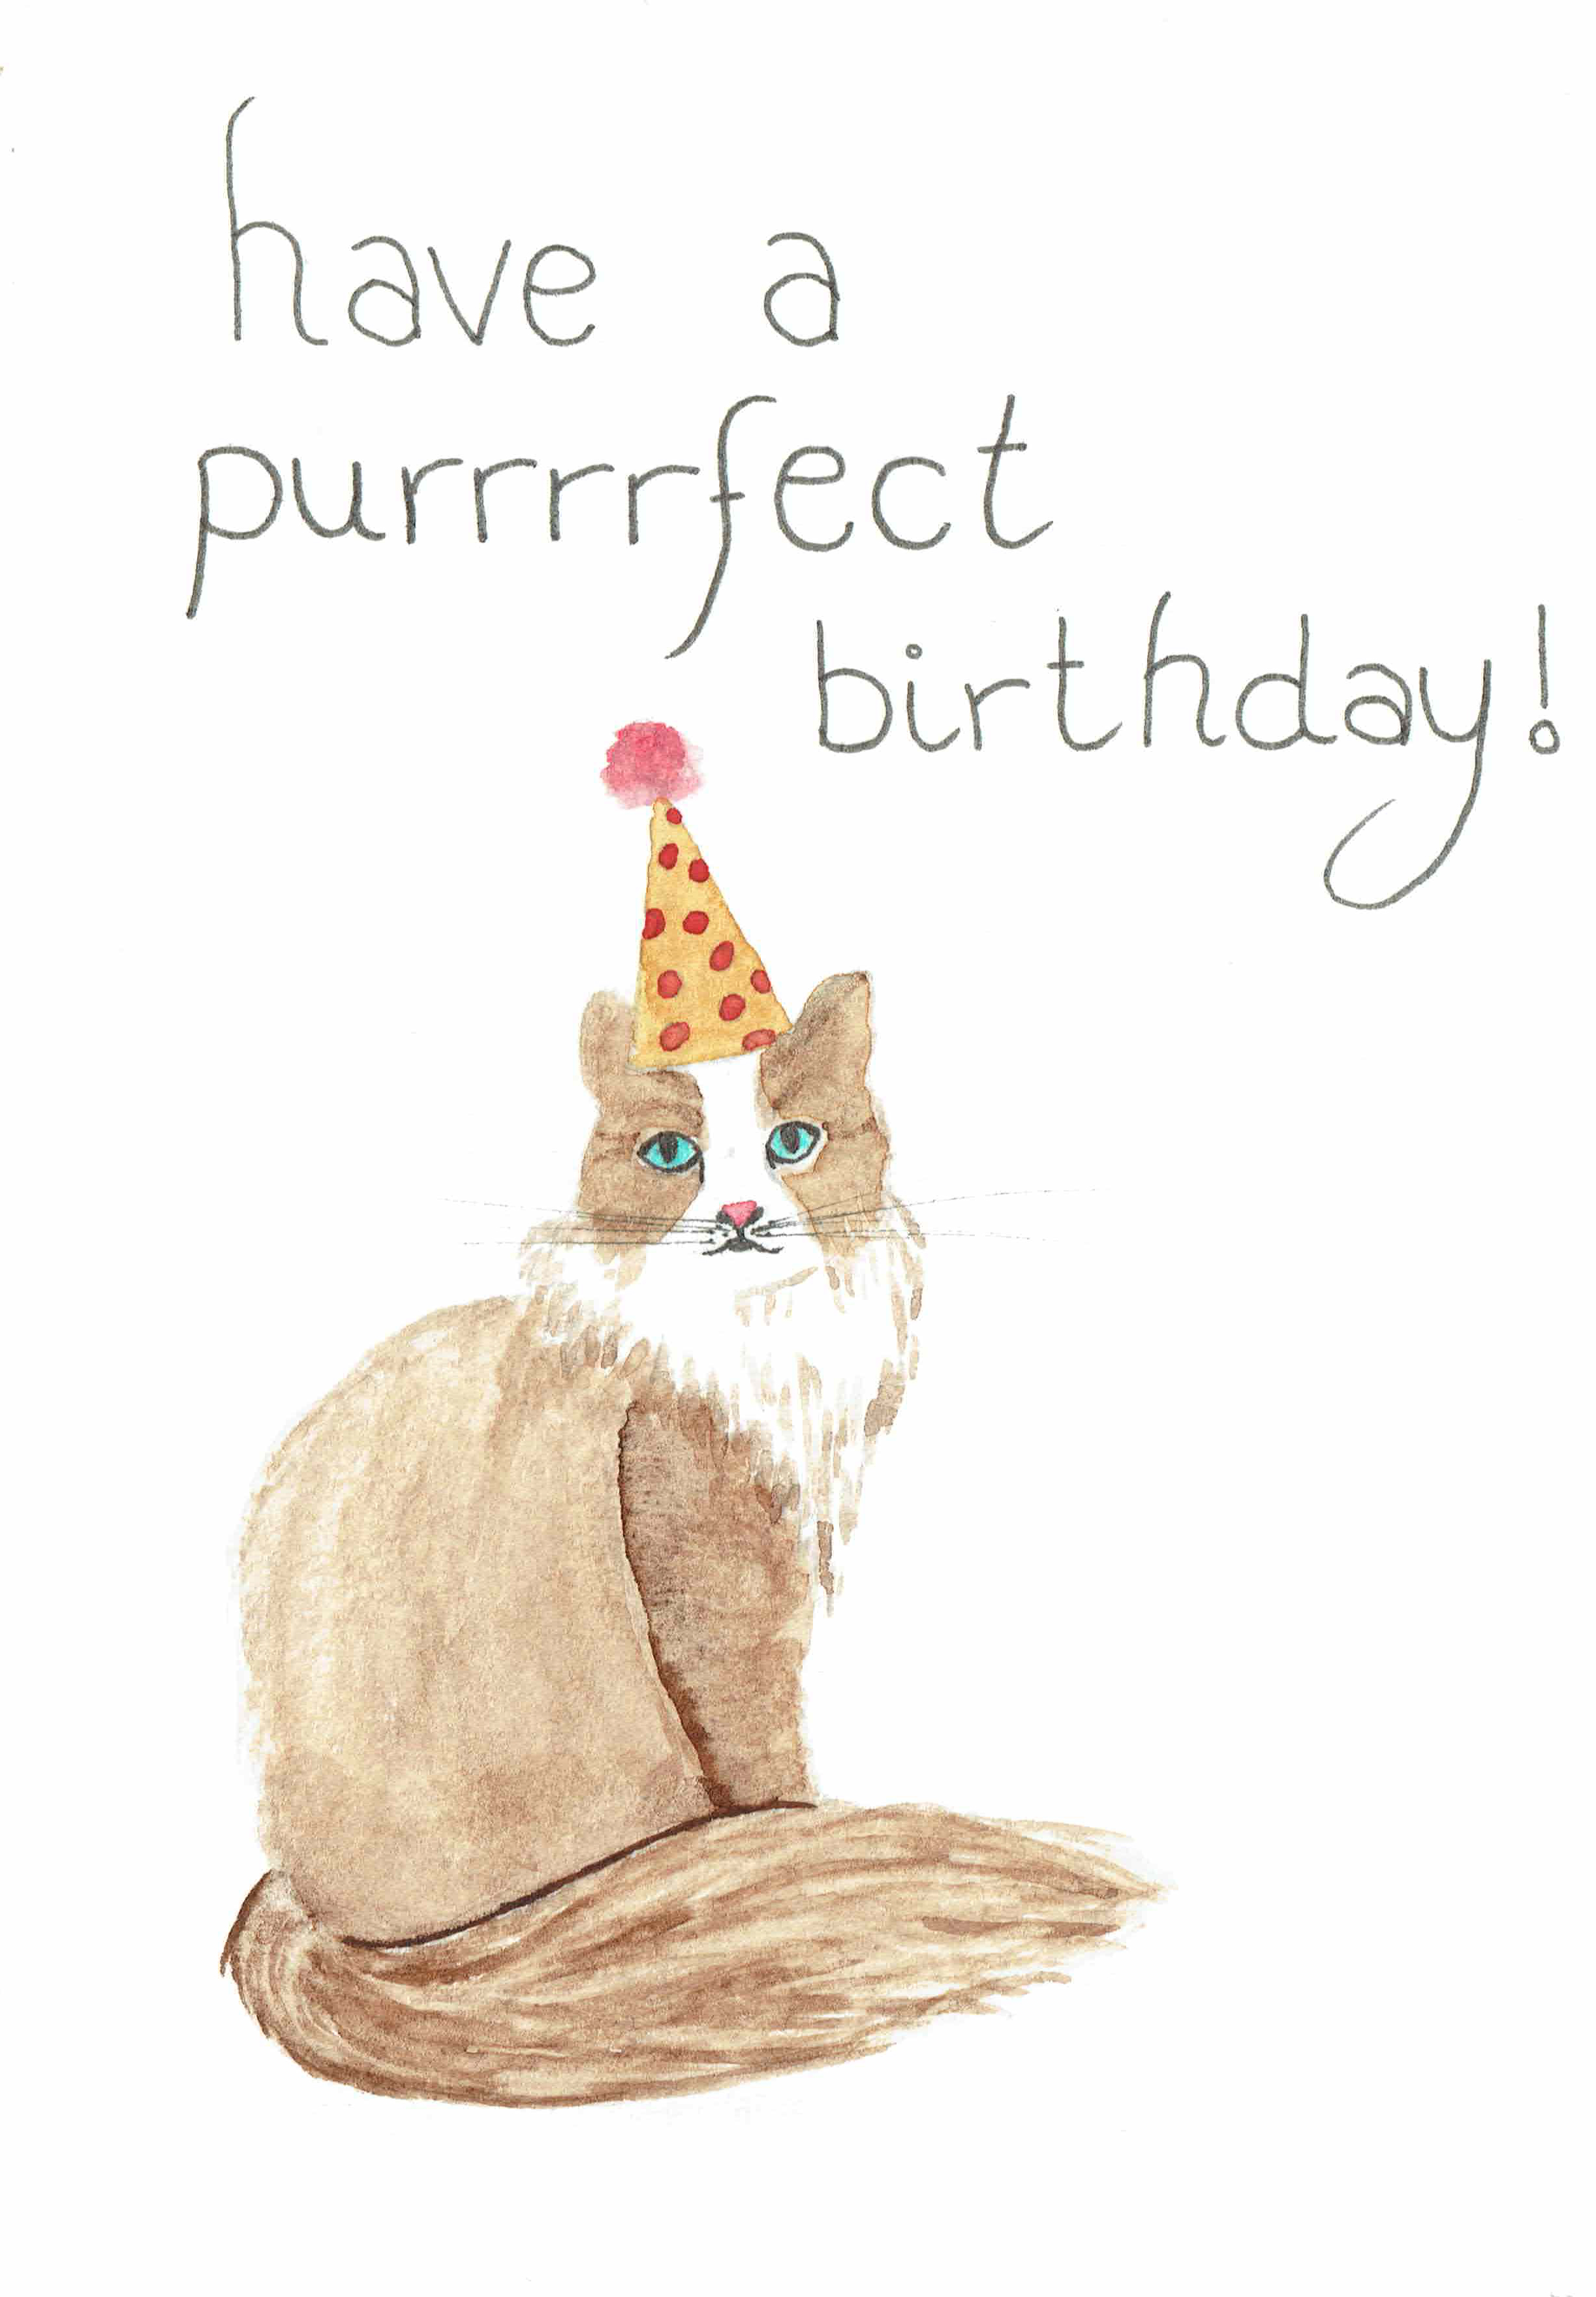 have a
purrrrfect
birthday!